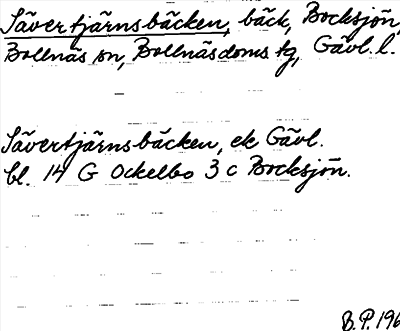 Sävertjärnsbäcken, bäck, Bocksjön,
Bollnäs sn, Bollnäsdoms tg, Gävl. l.
Sävertjärnsbäcken, ek Gävl.
bl. 14 G Ockelbo 3 c Bocksjön.
B.P. 196